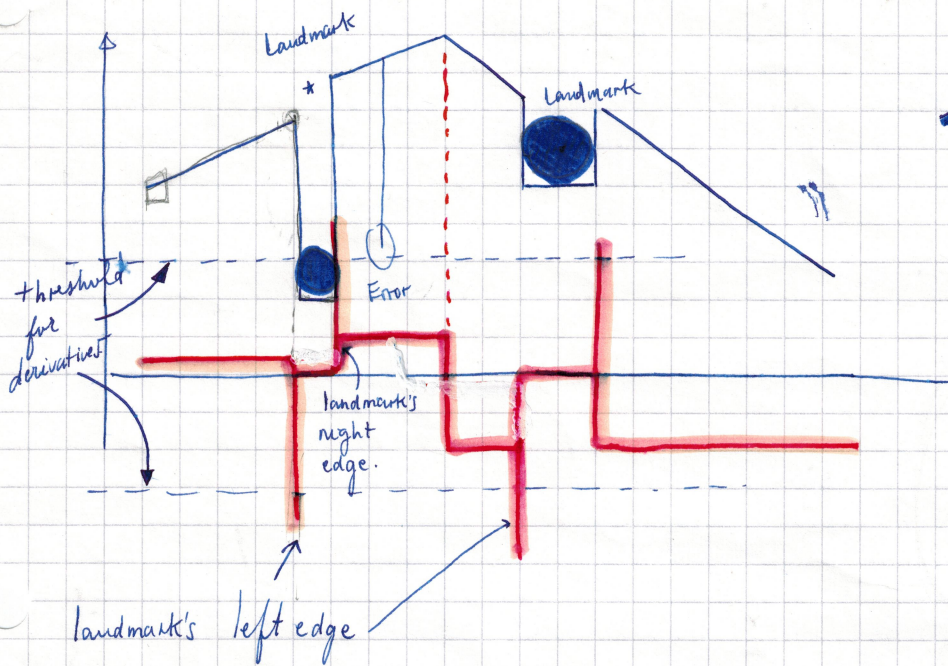 Landmark
*
Landmark
threshold
for
derivatives
Error
landmark's
right
edge.
landmark's left edge